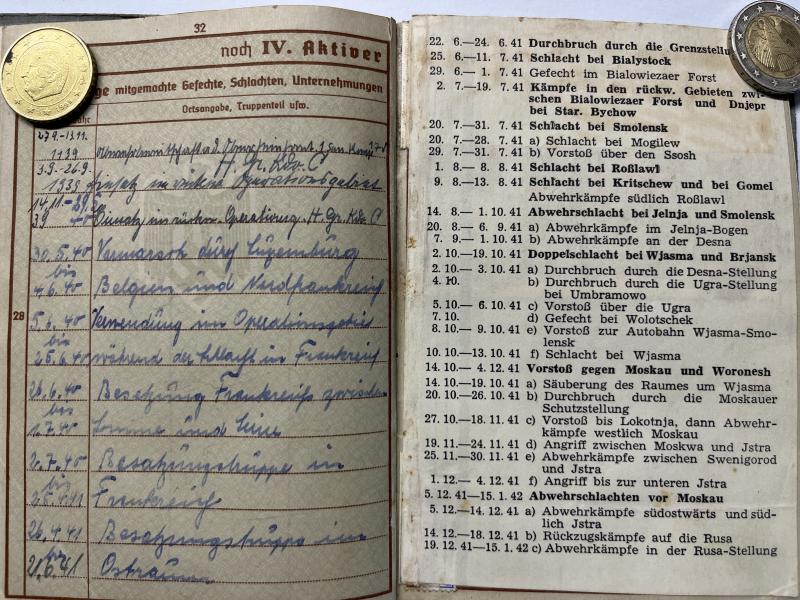 32
noch IV. Aktiver
ge mitgemachte Gefechte, Schlachten, Unternehmungen
Jahr Ortsangabe, Truppenteil usw.
27.9.-13.11.
1939
3.9.-26.9. H. Gr. Kdo. C
1939 Einsatz im rückw. Operationsgebiet
14.11.-
39 Einsatz im rückw. Operationsg. H. Gr. Kdo C
30.5.40 Vormarsch durch Luxemburg
bis
4.6.40 Belgien und Nordfrankreich
28
5.6.40 Verwendung im Operationsgebiet
bis
25.6.40 während der Schlacht in Frankreich
26.6.40 Besatzung Frankreichs zwischen
bis
1.7.40 Somme und Seine
2.7.40 Besatzungstruppe in
bis
25.4.41 Frankreich
26.4.41 Besatzungstruppe im
bis
21.6.41 Ostraum
22. 6.—24. 6. 41 Durchbruch durch die Grenzstellu
25. 6.—11. 7. 41 Schlacht bei Bialystock
29. 6.— 1. 7. 41 Gefecht im Bialowiezaer Forst
2. 7.—19. 7. 41 Kämpfe in den rückw. Gebieten zwi-
schen Bialowiezaer Forst und Dnjepr
bei Star. Bychow
20. 7.—31. 7. 41 Schlacht bei Smolensk
20. 7.—28. 7. 41 a) Schlacht bei Mogilew
29. 7.—31. 7. 41 b) Vorstoß über den Ssosh
1. 8.— 8. 8. 41 Schlacht bei Roßlawl
9. 8.—13. 8. 41 Schlacht bei Kritschew und bei Gomel
Abwehrkämpfe südlich Roßlawl
14. 8.— 1. 10. 41 Abwehrschlacht bei Jelnja und Smolensk
20. 8.— 6. 9. 41 a) Abwehrkämpfe im Jelnja-Bogen
7. 9.— 1. 10. 41 b) Abwehrkämpfe an der Desna
2. 10.—19. 10. 41 Doppelschlacht bei Wjasma und Brjansk
2. 10.— 3. 10. 41 a) Durchbruch durch die Desna-Stellung
4. 10. b) Durchbruch durch die Ugra-Stellung
bei Umbramowo
5. 10.— 6. 10. 41 c) Vorstoß über die Ugra
7. 10. d) Gefecht bei Wolotschek
8. 10.— 9. 10. 41 e) Vorstoß zur Autobahn Wjasma-Smo-
lensk
10. 10.—13. 10. 41 f) Schlacht bei Wjasma
14. 10.— 4. 12. 41 Vorstoß gegen Moskau und Woronesh
14. 10.—19. 10. 41 a) Säuberung des Raumes um Wjasma
20. 10.—26. 10. 41 b) Durchbruch durch die Moskauer
Schutzstellung
27. 10.—18. 11. 41 c) Vorstoß bis Lokotnja, dann Abwehr-
kämpfe westlich Moskau
19. 11.—24. 11. 41 d) Angriff zwischen Moskwa und Jstra
25. 11.—30. 11. 41 e) Abwehrkämpfe zwischen Swenigorod
und Jstra
1. 12.— 4. 12. 41 f) Angriff bis zur unteren Jstra
5. 12. 41—15. 1. 42 Abwehrschlachten vor Moskau
5. 12.—14. 12. 41 a) Abwehrkämpfe südostwärts und süd-
lich Jstra
14. 12.—18. 12. 41 b) Rückzugskämpfe auf die Rusa
19. 12. 41—15. 1. 42 c) Abwehrkämpfe in der Rusa-Stellung